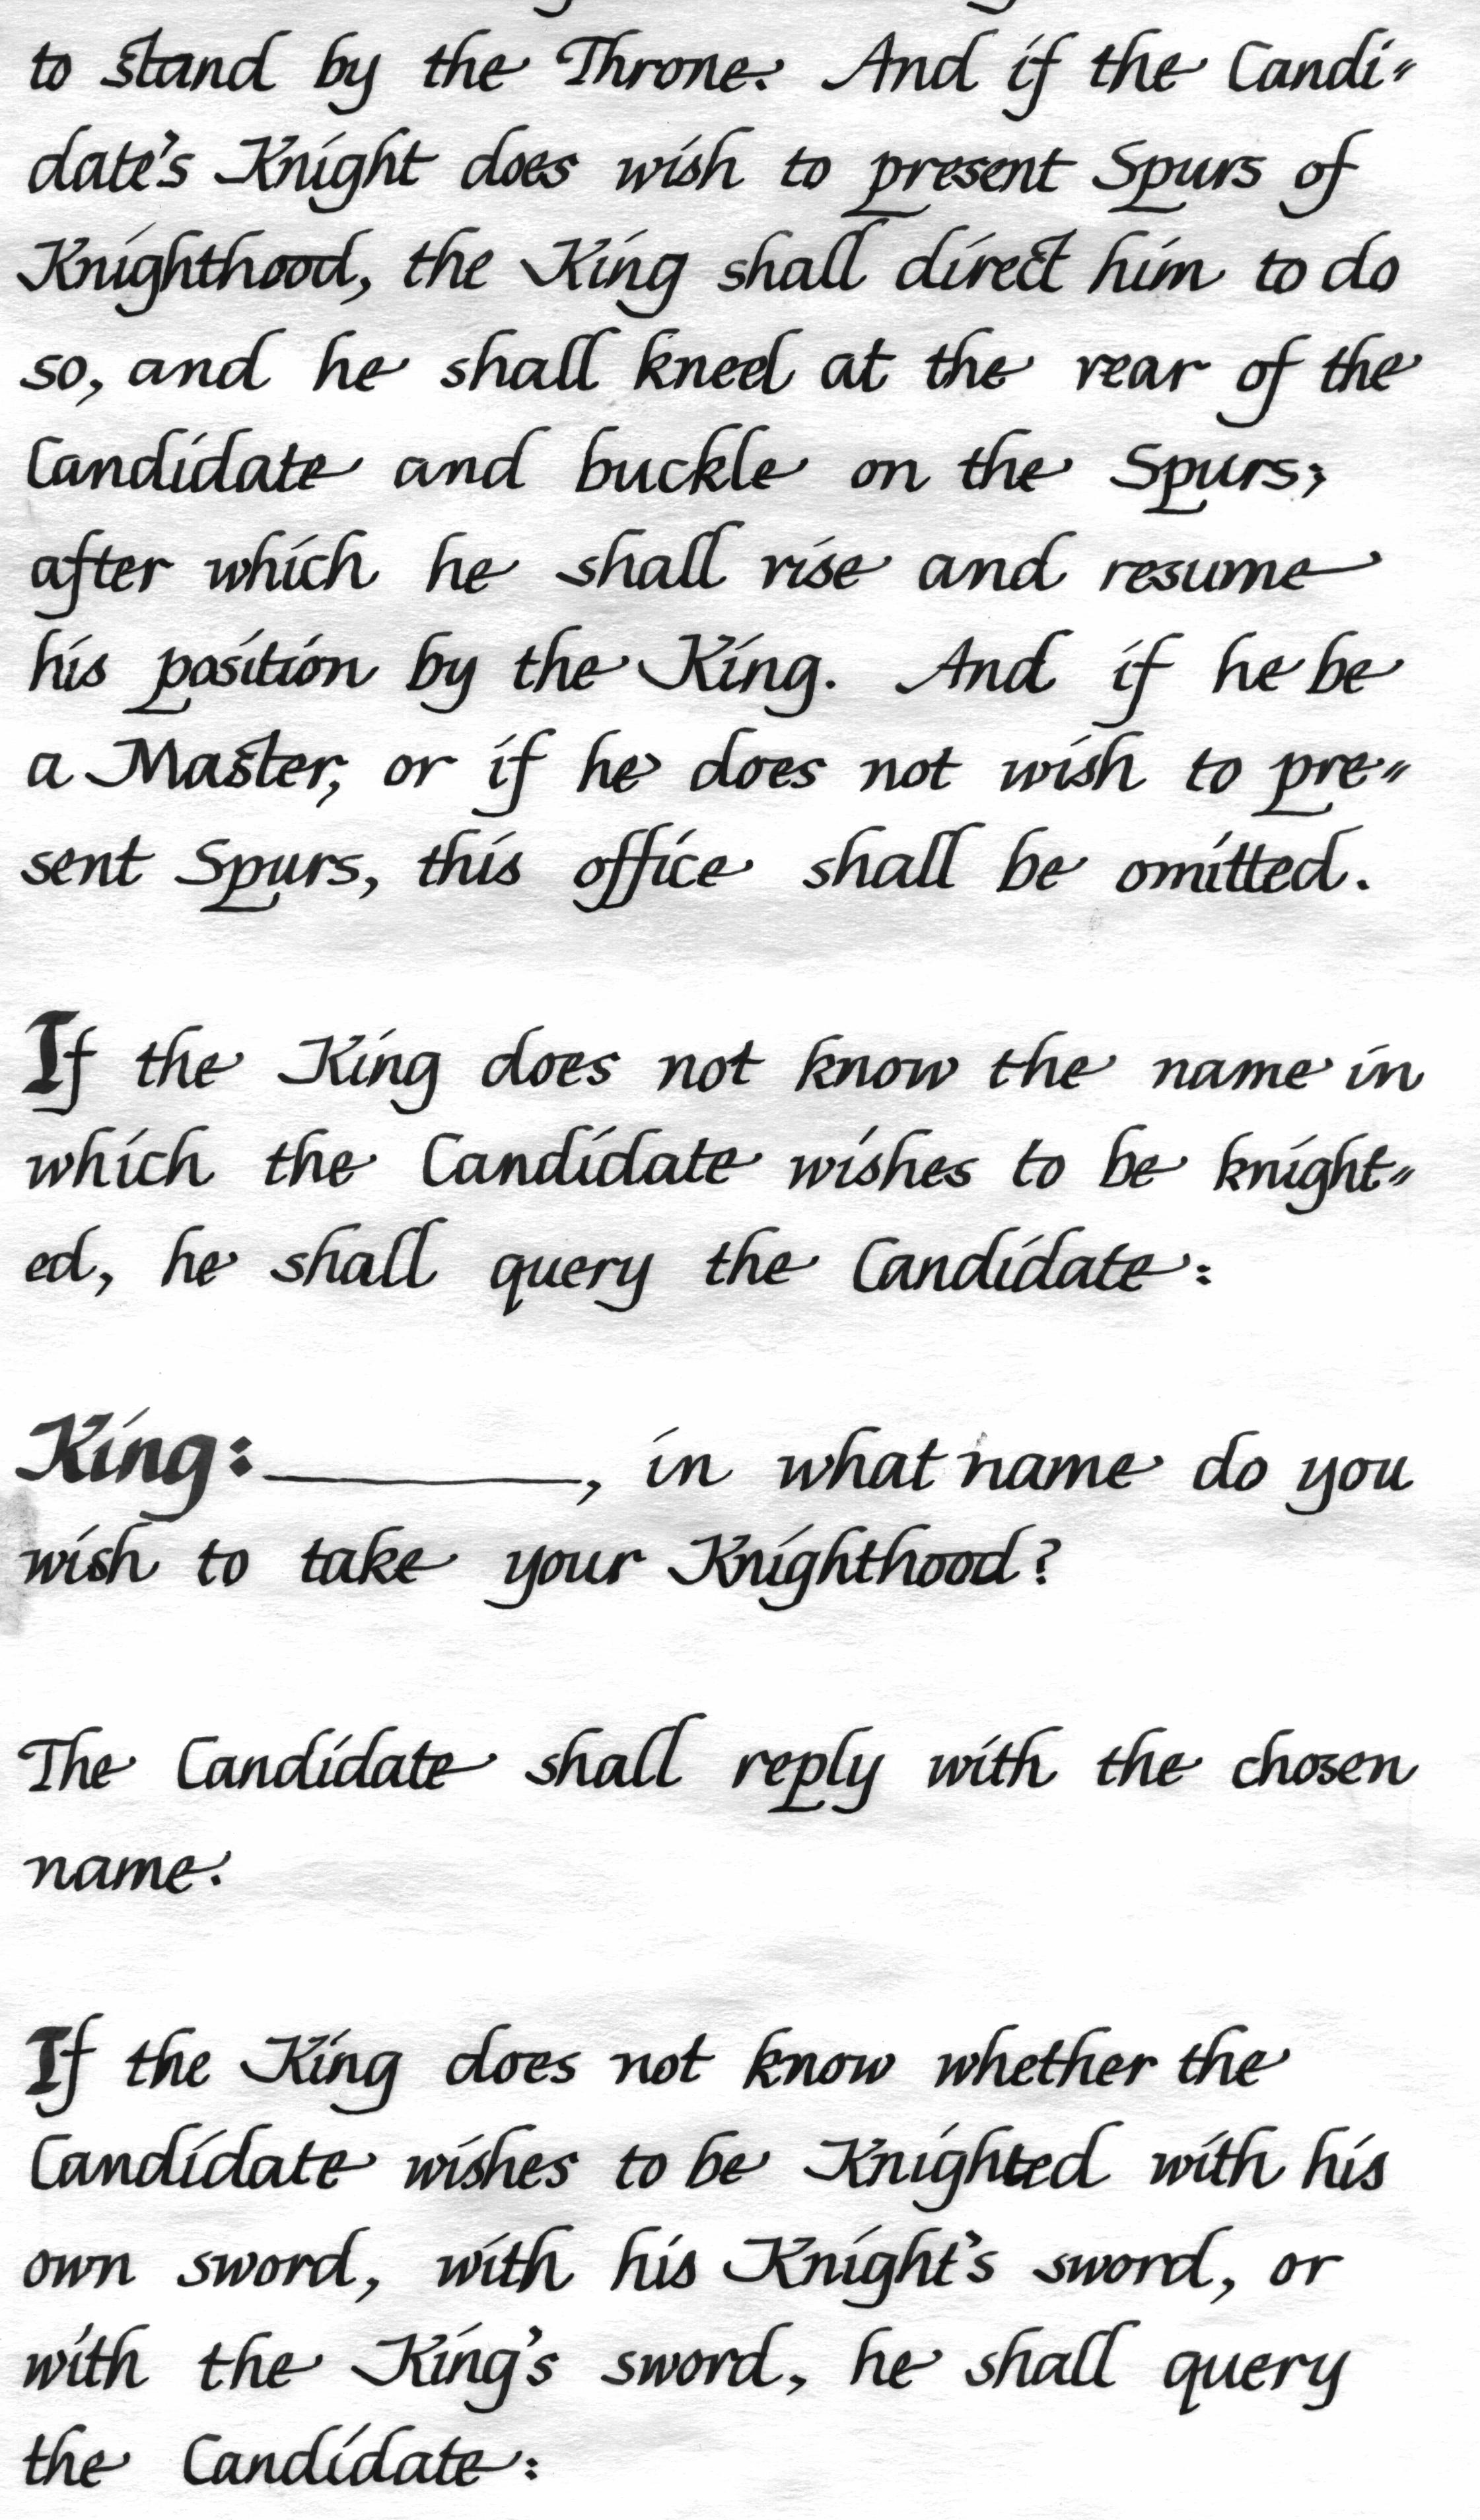 to stand by the Throne. And if the Candi=
date's Knight does wish to present Spurs of
Knighthood, the King shall direct him to do
so, and he shall kneel at the rear of the
Candidate and buckle on the Spurs;
after which he shall rise and resume
his position by the King. And if he be
a Master, or if he does not wish to pre=
sent Spurs, this office shall be omitted.
If the King does not know the name in
which the Candidate wishes to be knight=
ed, he shall query the Candidate:
King: ________, in what name do you
wish to take your Knighthood?
The Candidate shall reply with the chosen
name.
If the King does not know whether the
Candidate wishes to be Knighted with his
own sword, with his Knight's sword, or
with the King's sword, he shall query
the Candidate: